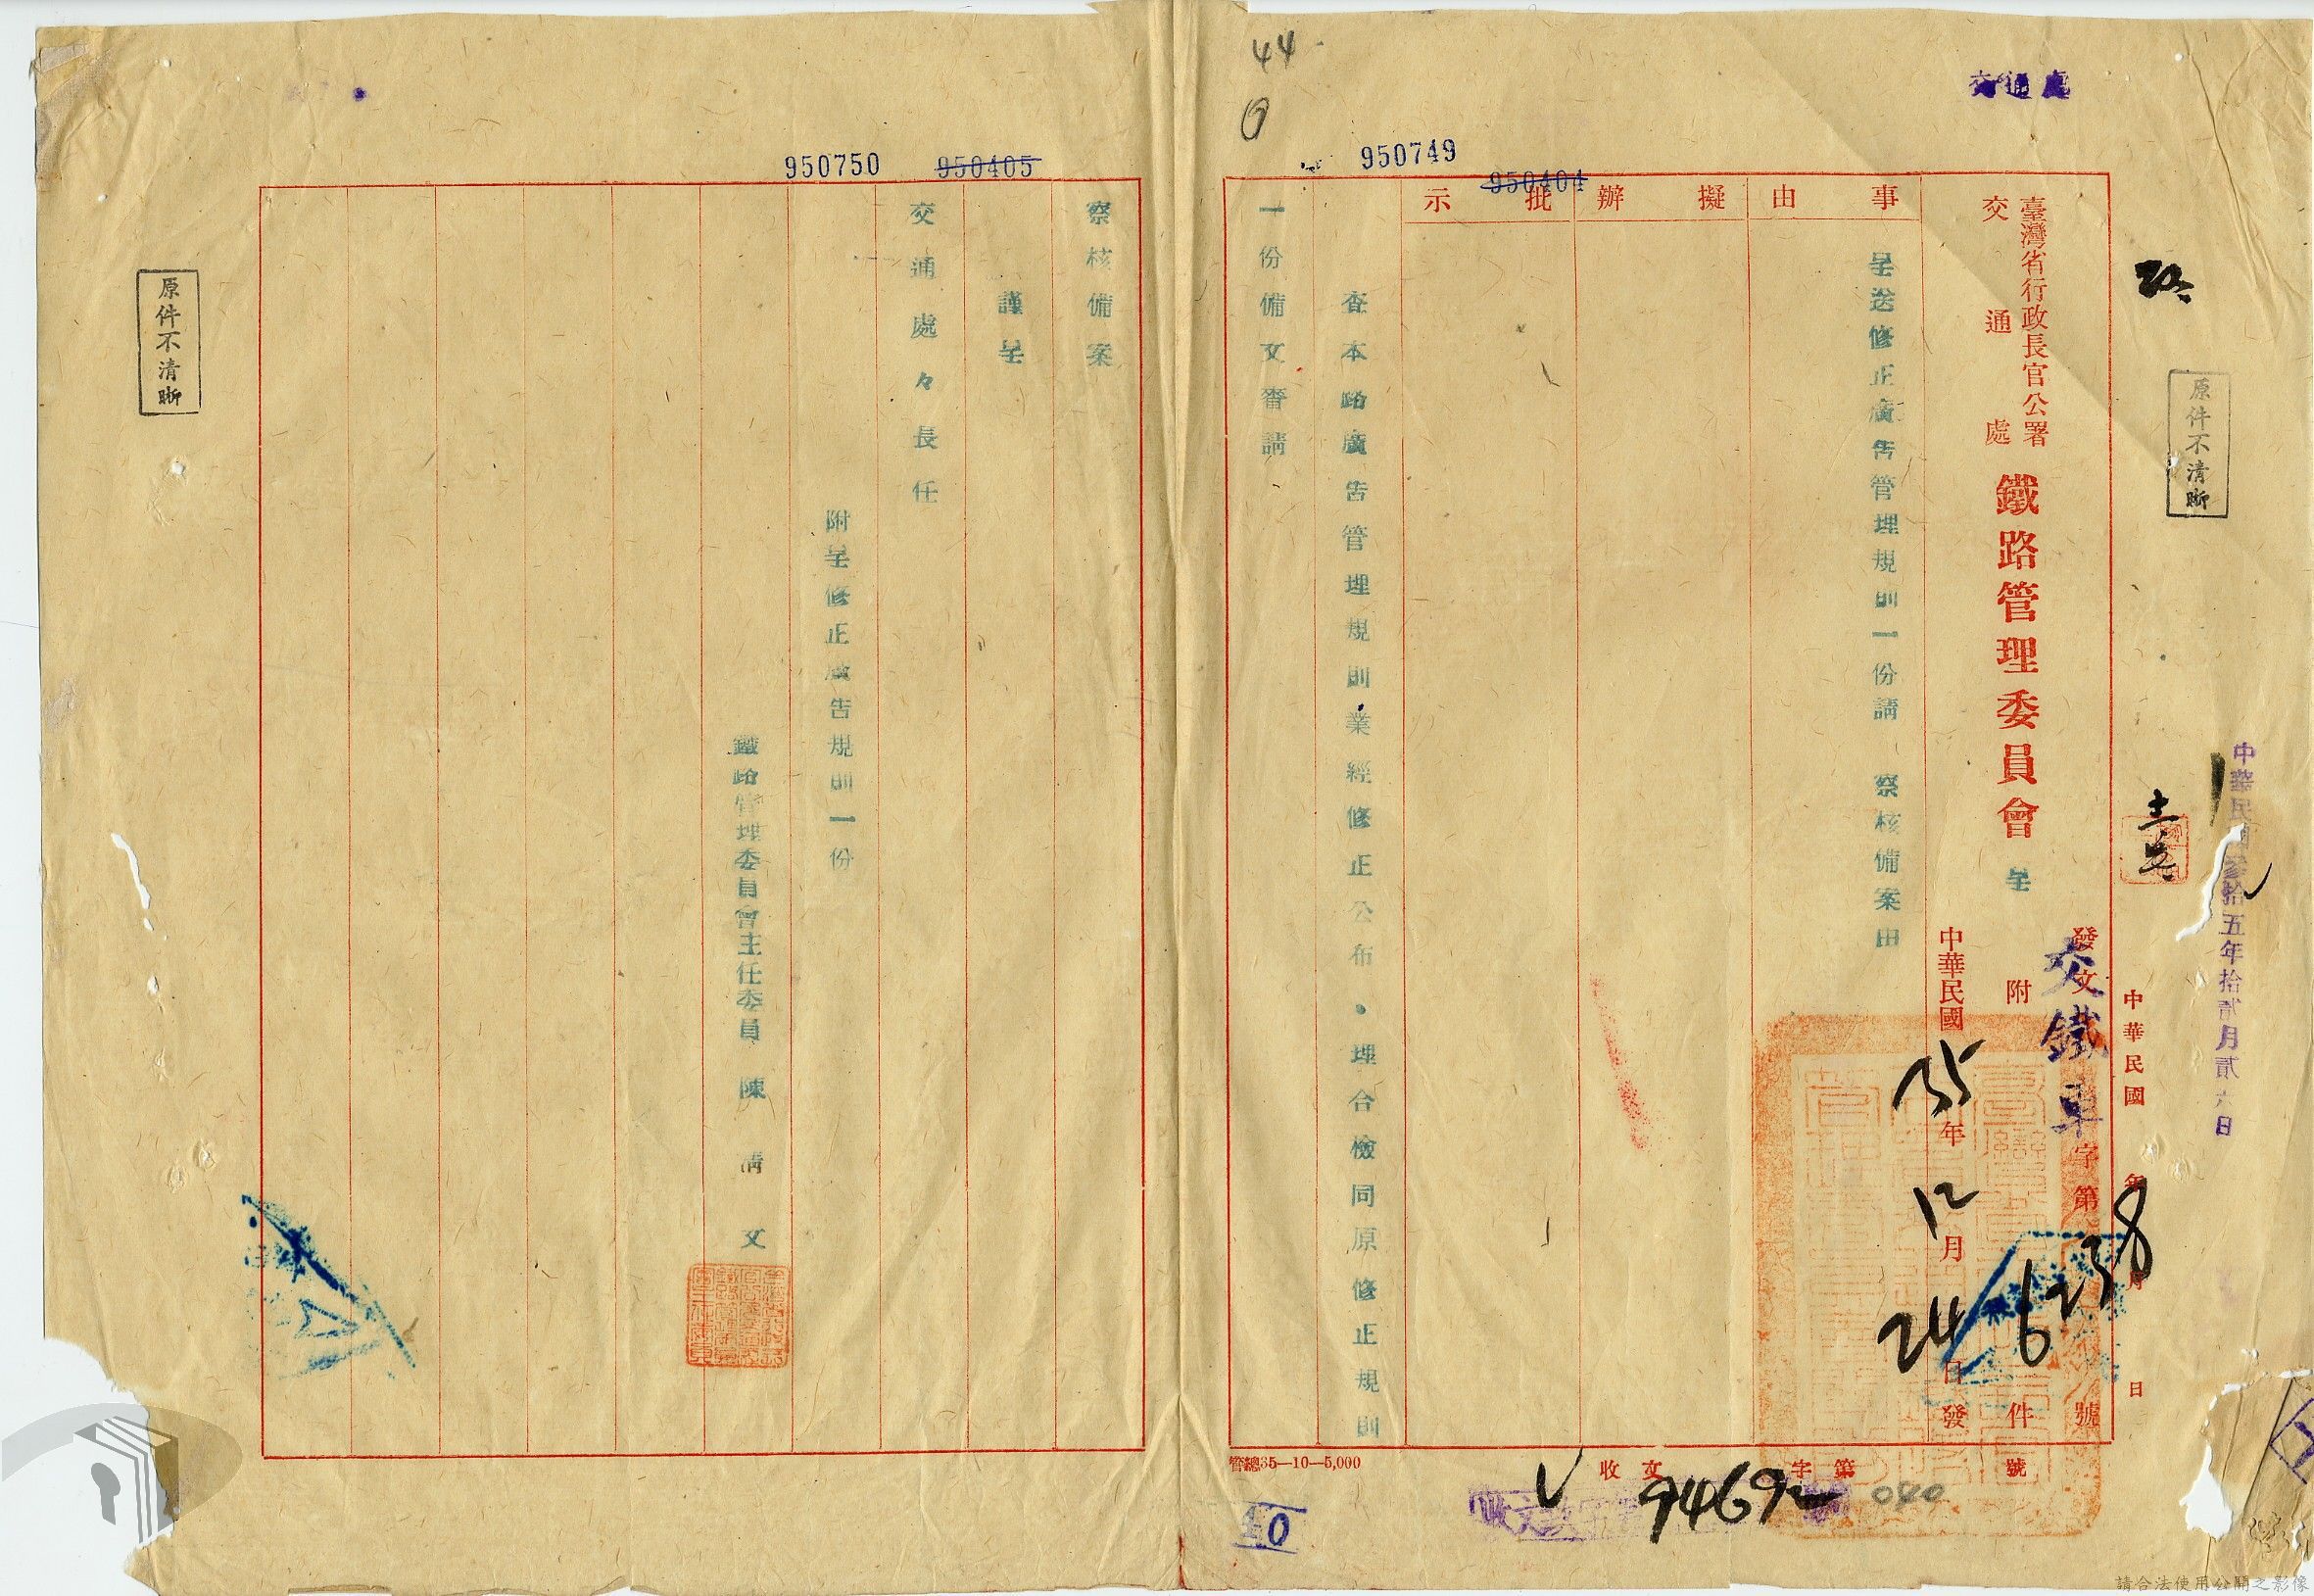 44
0
交通處
950749
950404
路
原件不清晰
中華民國參拾五年拾貳月貳六日
中華民國 年 月 日
臺灣省行政長官公署
交通處
鐵路管理委員會 呈
發文 交鐵車 字第 6238 號
附 件
中華民國 35 年 12 月 24 日發
事由
擬辦
批示
呈送修正廣告管理規則一份請 察核備案由
查本路廣告管理規則業經修正公布。理合檢同原修正規則
一份備文齎請
管總35—10—5,000
收文 字第 號
94692
040
40
950750
950405
察核備案
謹呈
交通處々長任
附呈修正廣告規則一份
鐵路管理委員會主任委員 陳清文
原件不清晰
請合法使用公開之影像